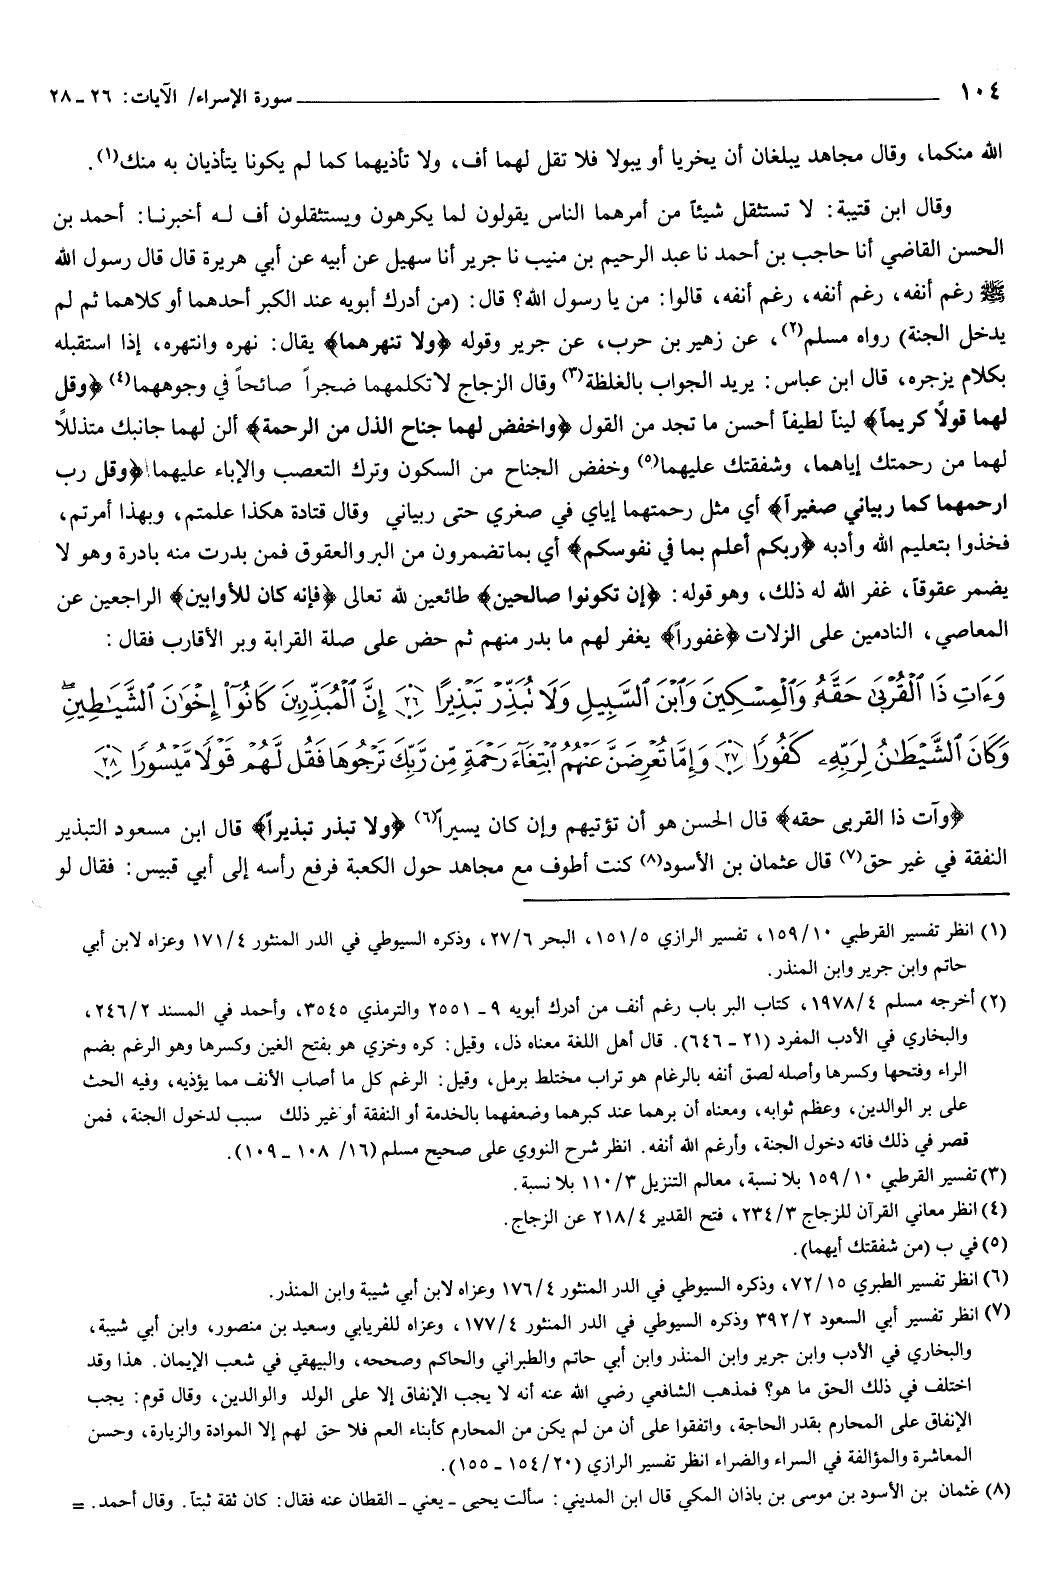 ١٠٤ ــــــ سورة الإسراء/ الآيات: ٢٦ ـ ٢٨
الله منكما، وقال مجاهد يبلغان أن يخريا أو يبولا فلا تقل لهما أف، ولا تأذيهما كما لم يكونا يتأذيان به منك(١).
وقال ابن قتيبة: لا تستثقل شيئاً من أمرهما الناس يقولون لما يكرهون ويستثقلون أف لـه أخبرنـا: أحمد بن
الحسن القاضي أنا حاجب بن أحمد نا عبد الرحيم بن منيب نا جرير أنا سهيل عن أبيه عن أبي هريرة قال قال رسول الله
ﷺ رغم أنفه، رغم أنفه، رغم أنفه، قالوا: من يا رسول الله؟ قال: (من أدرك أبويه عند الكبر أحدهما أو كلاهما ثم لم
يدخل الجنة) رواه مسلم(٢)، عن زهير بن حرب، عن جرير وقوله ﴿ولا تنهرهما﴾ يقال: نهره وانتهره، إذا استقبله
بكلام يزجره، قال ابن عباس: يريد الجواب بالغلظة(٣) وقال الزجاج لا تكلمهما ضجراً صائحاً في وجوههما(٤) ﴿وقل
لهما قولاً كريماً﴾ ليناً لطيفاً أحسن ما تجد من القول ﴿واخفض لهما جناح الذل من الرحمة﴾ ألن لهما جانبك متذللاً
لهما من رحمتك إياهما، وشفقتك عليهما(٥) وخفض الجناح من السكون وترك التعصب والإباء عليهما ﴿وقل رب
ارحمهما كما ربياني صغيراً﴾ أي مثل رحمتهما إياي في صغري حتى ربياني وقال قتادة هكذا علمتم، وبهذا أمرتم،
فخذوا بتعليم الله وأدبه ﴿ربكم أعلم بما في نفوسكم﴾ أي بما تضمرون من البر والعقوق فمن بدرت منه بادرة وهو لا
يضمر عقوقاً، غفر الله له ذلك، وهو قوله: ﴿إن تكونوا صالحين﴾ طائعين لله تعالى ﴿فإنه كان للأوابين﴾ الراجعين عن
المعاصي، النادمين على الزلات ﴿غفوراً﴾ يغفر لهم ما بدر منهم ثم حض على صلة القرابة وبر الأقارب فقال:
وَءَاتِ ذَا ٱلْقُرْبَىٰ حَقَّهُۥ وَٱلْمِسْكِينَ وَٱبْنَ ٱلسَّبِيلِ وَلَا تُبَذِّرْ تَبْذِيرًا ﴿٢٦﴾ إِنَّ ٱلْمُبَذِّرِينَ كَانُوٓا۟ إِخْوَٰنَ ٱلشَّيَـٰطِينِ ۖ
وَكَانَ ٱلشَّيْطَـٰنُ لِرَبِّهِۦ كَفُورًا ﴿٢٧﴾ وَإِمَّا تُعْرِضَنَّ عَنْهُمُ ٱبْتِغَآءَ رَحْمَةٍ مِّن رَّبِّكَ تَرْجُوهَا فَقُل لَّهُمْ قَوْلًا مَّيْسُورًا ﴿٢٨﴾
﴿وآت ذا القربى حقه﴾ قال الحسن هو أن تؤتيهم وإن كان يسيراً(٦) ﴿ولا تبذر تبذيراً﴾ قال ابن مسعود التبذير
النفقة في غير حق(٧) قال عثمان بن الأسود(٨) كنت أطوف مع مجاهد حول الكعبة فرفع رأسه إلى أبي قبيس: فقال لو
(١) انظر تفسير القرطبي ١٥٩/١٠، تفسير الرازي ١٥١/٥، البحر ٢٧/٦، وذكره السيوطي في الدر المنثور ١٧١/٤ وعزاه لابن أبي
حاتم وابن جرير وابن المنذر.
(٢) أخرجه مسلم ١٩٧٨/٤، كتاب البر باب رغم أنف من أدرك أبويه ٩ ـ ٢٥٥١ والترمذي ٣٥٤٥، وأحمد في المسند ٢٤٦/٢،
والبخاري في الأدب المفرد (٢١ ـ ٦٤٦). قال أهل اللغة معناه ذل، وقيل: كره وخزي هو بفتح الغين وكسرها وهو الرغم بضم
الراء وفتحها وكسرها وأصله لصق أنفه بالرغام هو تراب مختلط برمل، وقيل: الرغم كل ما أصاب الأنف مما يؤذيه، وفيه الحث
على بر الوالدين، وعظم ثوابه، ومعناه أن برهما عند كبرهما وضعفهما بالخدمة أو النفقة أو غير ذلك سبب لدخول الجنة، فمن
قصر في ذلك فاته دخول الجنة، وأرغم الله أنفه. انظر شرح النووي على صحيح مسلم (١٦/ ١٠٨ ـ ١٠٩).
(٣) تفسير القرطبي ١٥٩/١٠ بلا نسبة، معالم التنزيل ١١٠/٣ بلا نسبة.
(٤) انظر معاني القرآن للزجاج ٢٣٤/٣، فتح القدير ٢١٨/٤ عن الزجاج.
(٥) في ب (من شفقتك أيهما).
(٦) انظر تفسير الطبري ٧٢/١٥، وذكره السيوطي في الدر المنثور ١٧٦/٤ وعزاه لابن أبي شيبة وابن المنذر.
(٧) انظر تفسير أبي السعود ٣٩٢/٢ وذكره السيوطي في الدر المنثور ١٧٧/٤، وعزاه للفريابي وسعيد بن منصور، وابن أبي شيبة،
والبخاري في الأدب وابن جرير وابن المنذر وابن أبي حاتم والطبراني والحاكم وصححه، والبيهقي في شعب الإيمان. هذا وقد
اختلف في ذلك الحق ما هو؟ فمذهب الشافعي رضي الله عنه أنه لا يجب الإنفاق إلا على الولد والوالدين، وقال قوم: يجب
الإنفاق على المحارم بقدر الحاجة، واتفقوا على أن من لم يكن من المحارم كأبناء العم فلا حق لهم إلا الموادة والزيارة، وحسن
المعاشرة والمؤالفة في السراء والضراء انظر تفسير الرازي (١٥٤/٢٠ ـ ١٥٥).
(٨) عثمان بن الأسود بن موسى بن باذان المكي قال ابن المديني: سألت يحيى ـ يعني ـ القطان عنه فقال: كان ثقة ثبتاً. وقال أحمد. =